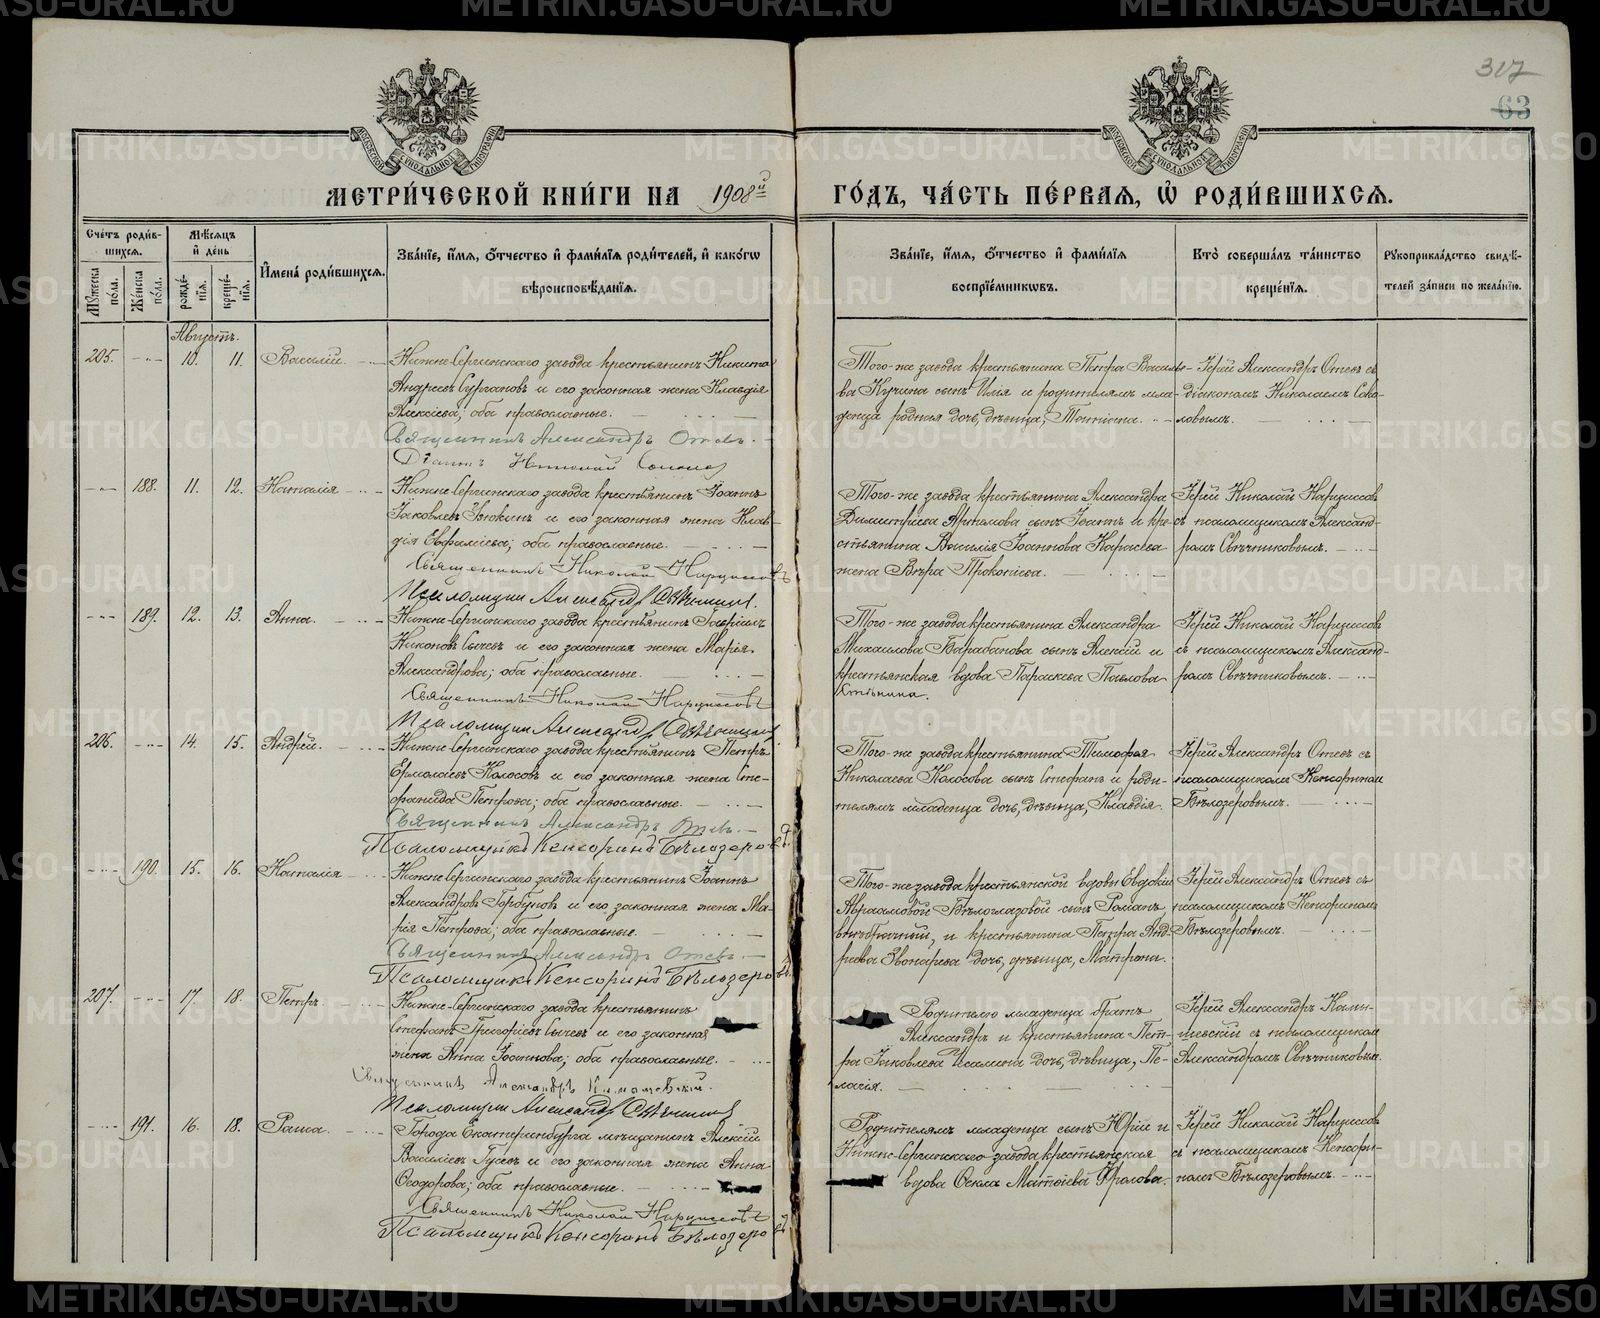 317
63
МЕТРИ́ЧЕСКОЙ КНИ́ГИ НА 1908й
ГО́ДЪ, ЧА́СТЬ ПЕ́РВАЯ, Ѡ РОДИ́ВШИХСЯ.
Сче́тъ роди́в-
шихся.
Му́жеска по́ла.
Же́нска по́ла.
Мѣ́сяцъ и де́нь
рожде́-нїя.
креще́-нїя.
И҆мена̀ роди́вшихся.
Зва́нїе, и҆́мя, ѻ҆́тчество и҆ фами́лїя роди́телей, и҆ како́гѡ
вѣроисповѣ́данїя.
Зва́нїе, и҆́мя, ѻ҆́тчество и҆ фами́лїя
воспрїе́мникѡвъ.
Кто̀ соверша́лъ та́инство
креще́нїя.
Рꙋкоприкла́дство свидѣ́-
телей за́писи по жела́нїю.
Августъ.
205. 10. 11. Василій.
Нижне-Сергинскаго завода крестьянинъ Никита
Андреевъ Сургановъ и его законная жена Клавдія
Алексіева; оба православные.
Священникъ Александръ Отевъ.
Діаконъ Николай
Того-же завода крестьянина Петра Василь-
ева Кучина сынъ Илія и родителямъ мла-
денца родная дочь, дѣвица, Татіана.
Іерей Александръ Отевъ съ
діакономъ Николаемъ Соко-
ловымъ.
188. 11. 12. Наталія
Нижне-Сергинскаго завода крестьянинъ Іоаннъ
Іаковлевъ и его законная жена Клав-
дія Евфиміева; оба православные.
Священникъ Николай Нарциссовъ
Псаломщикъ Александръ Свѣчниковъ.
Того-же завода крестьянина Александра
Димитріева Артамова сынъ Іоаннъ и кре-
стьянина Василія Іоаннова Карасева
жена Вѣра Прокопіева.
Іерей Николай Нарциссовъ
съ псаломщикомъ Александ-
ромъ Свѣчниковымъ.
189. 12. 13. Анна.
Нижне-Сергинскаго завода крестьянинъ Гавріилъ
Никоновъ Сычевъ и его законная жена Марія
Александрова; оба православные.
Священникъ Николай Нарциссовъ
Псаломщикъ Александръ Свѣчниковъ
Того-же завода крестьянина Александра
Михаилова Барабанова сынъ Алексій и
крестьянская вдова Параскева Павлова
Іерей Николай Нарциссовъ
съ псаломщикомъ Александ-
ромъ Свѣчниковымъ.
206. 14. 15. Андрей.
Нижне-Сергинскаго завода крестьянинъ Петръ
Ермолаевъ Колосовъ и его законная жена Сте-
фанида Петрова; оба православные.
Священникъ Александръ Отевъ.
Псаломщикъ Кенсоринъ Бѣлозеровъ.
Того-же завода крестьянина Тимофея
Николаева Колосова сынъ Стефанъ и роди-
телямъ младенца дочь, дѣвица, Клавдія.
Іерей Александръ Отевъ съ
псаломщикомъ Кенсориномъ
Бѣлозеровымъ.
190. 15. 16. Наталія
Нижне-Сергинскаго завода крестьянинъ Іоаннъ
Александровъ Горбуновъ и его законная жена Ма-
рія Петрова; оба православные.
Священникъ Александръ Отевъ.
Псаломщикъ Кенсоринъ Бѣлозеровъ.
Того-же завода крестьянской вдовы Евдокіи
Авраамовой Бѣлоглазовой сынъ Романъ,
внѣбрачный, и крестьянина Петра Анд-
реева Звонарева дочь, дѣвица, Матрона.
Іерей Александръ Отевъ съ
псаломщикомъ Кенсориномъ
Бѣлозеровымъ.
207. 17. 18. Петръ.
Нижне-Сергинскаго завода крестьянинъ
Стефанъ Григоріевъ Сычевъ и его законная
жена Анна Іоаннова; оба православные.
Священникъ Александръ
Псаломщикъ Александръ Свѣчниковъ
Родителю младенца братъ
Александръ и крестьянина Пет-
ра Іаковлева дочь, дѣвица, Пе-
лагія.
Іерей Александръ
съ псаломщикомъ
Александромъ Свѣчниковымъ.
191. 16. 18. Раиса.
Города Екатеринбурга мѣщанинъ Алексій
Василіевъ Гусевъ и его законная жена Анна
Ѳеодорова; оба православные.
Священникъ Николай Нарциссовъ
Псаломщикъ Кенсоринъ Бѣлозеровъ
Родителямъ младенца сынъ Юрій и
Нижне-Сергинскаго завода крестьянская
вдова Ѳекла Матѳіева Фролова.
Іерей Николай Нарциссовъ
съ псаломщикомъ Кенсори-
номъ Бѣлозеровымъ.
METRIKI.GASO-URAL.RU